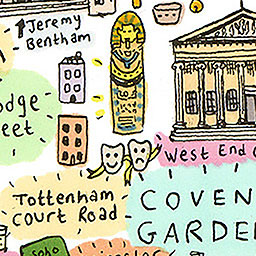 Jeremy
Bentham
odge
reet
West End
Tottenham
Court Road
COVEN
GARDE
soho